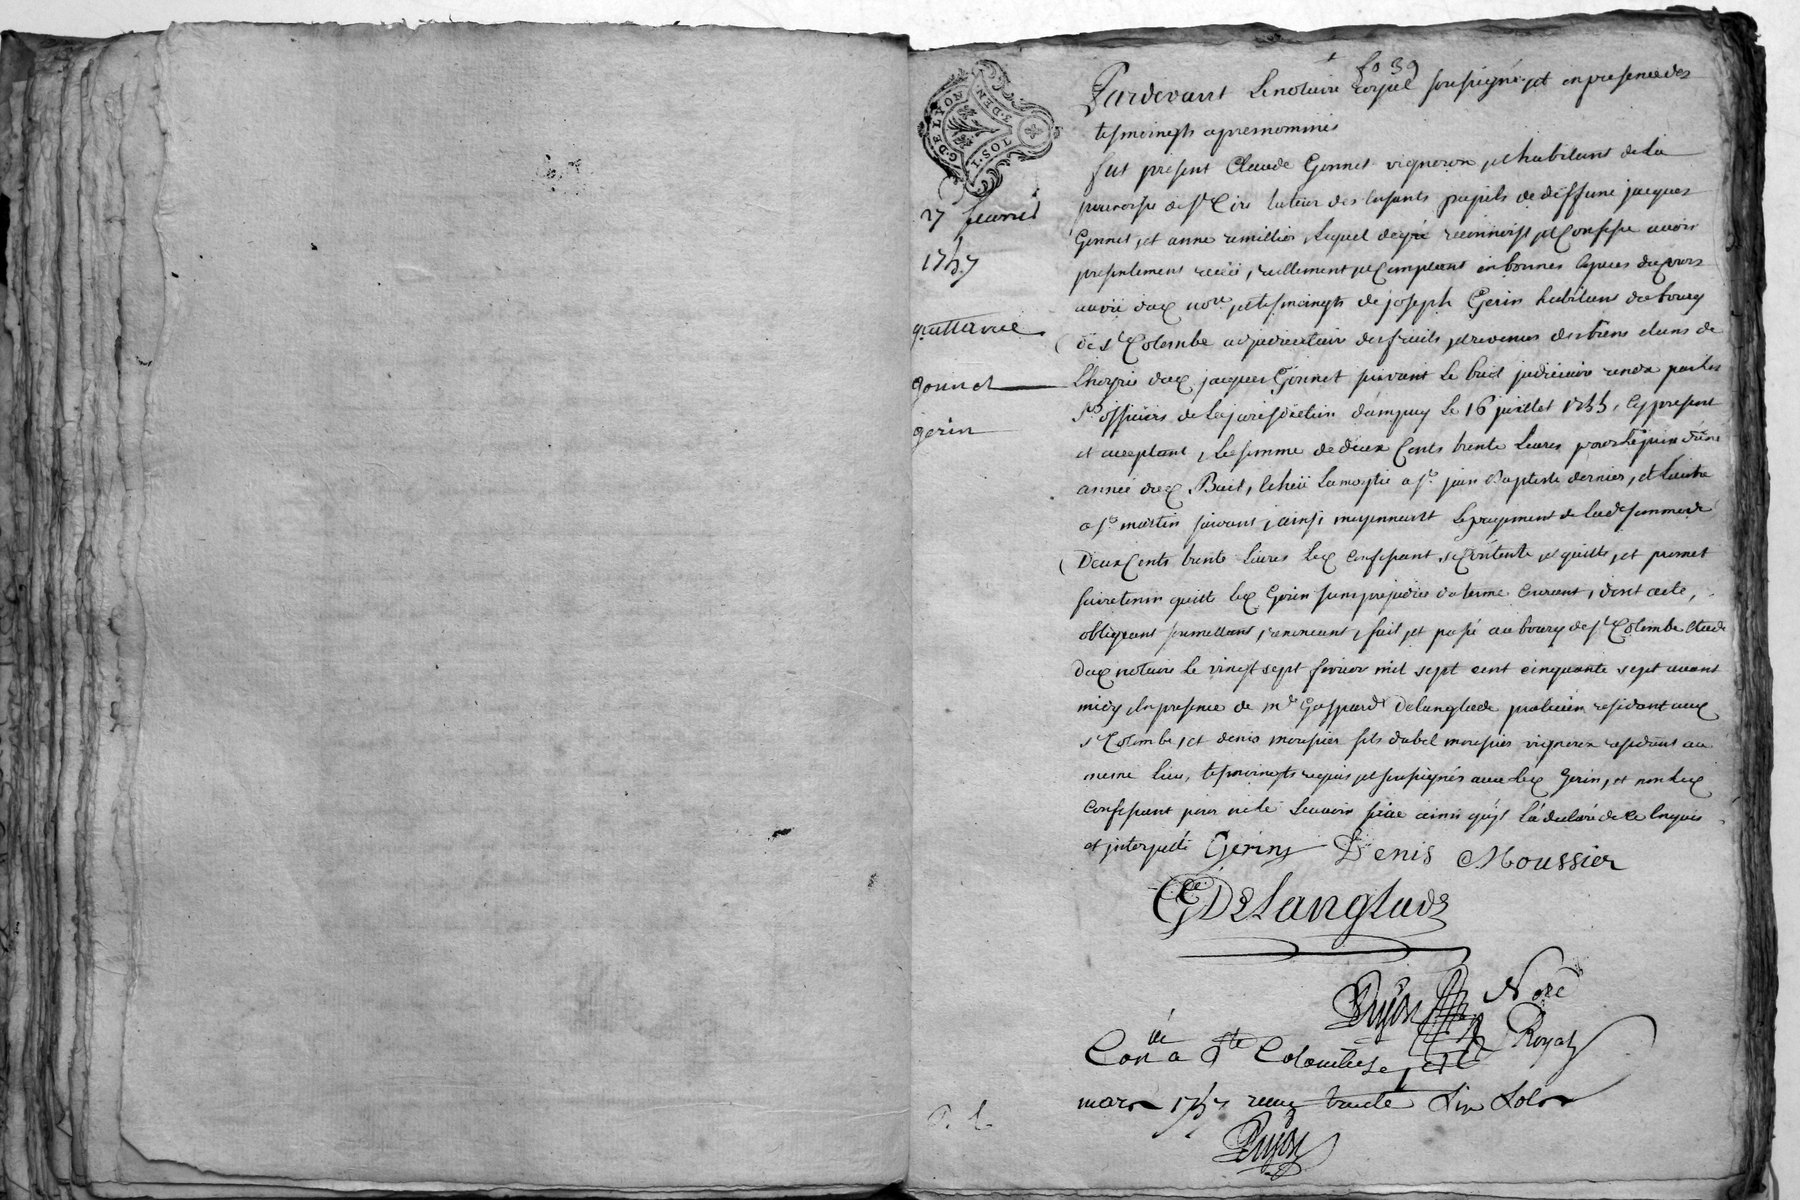 fo 39
G. DE LYON
3. DEN.
I. SOL
27 fevrier
1757
quittance
gonnet
gerin
Pardevant Le notaire royal soussigné, et en presence des
tesmoingts apres nommés
fut présent Claude Gonnet vigneron et habitant de la
parroisse de St Cire tuteur des enfants pupils de deffunt jacques
Gonnet, et anne remillier, Lequel de gré reconnoist et Confesse avoir
presentement receü, reellement et Comptant en bonnes especes de cours
au vü dux nore, et tesmoingts de joseph Gerin habitant du bourg
de Ste Colombe adjudicataire des fruits et revenus des biens dans
L'hoyrie dux jacques Gonnet suivant Le bail judiciaire rendu par les
srs officiers de la jurisdiction d'ampuy Le 16 juillet 1755, Cy present
et acceptant, La somme de deux Cents trente Livres pour une
année dux Bail, écheüe La moytié a St jean Baptiste dernier, et L'autre
a St martin suivant, ainsi moyennant Le payement de lade somme de
Deux Cents trente Livres Lex Confessant se Contente, et quitte, et promet
faire tenir quitte Lex Gerin sans prejudice du terme Courant, dont acte,
obligeant, soumettant, renonçant, fait, et passé au bourg de Ste Colombe étude
dux notaire le vingt sept fevrier mil sept cent cinquante sept avant
midy En presence de mr Gaspard Delanglade praticien residant aux
Ste Colombe, et denis moussier fils d'abel moussier vigneron residant au
meme Lieu, tesmoingts requis et soussignés avec Lex Gerin, et non Lex
Confessant pour ne Le sçavoir faire ainsi qu'il L'a déclaré de ce enquis
et interpellé Gerin Denis Moussier
G DeLanglade
Dujon Nore
Royal
Conlé a Ste Colombe
mars 1757 receu
Dujon